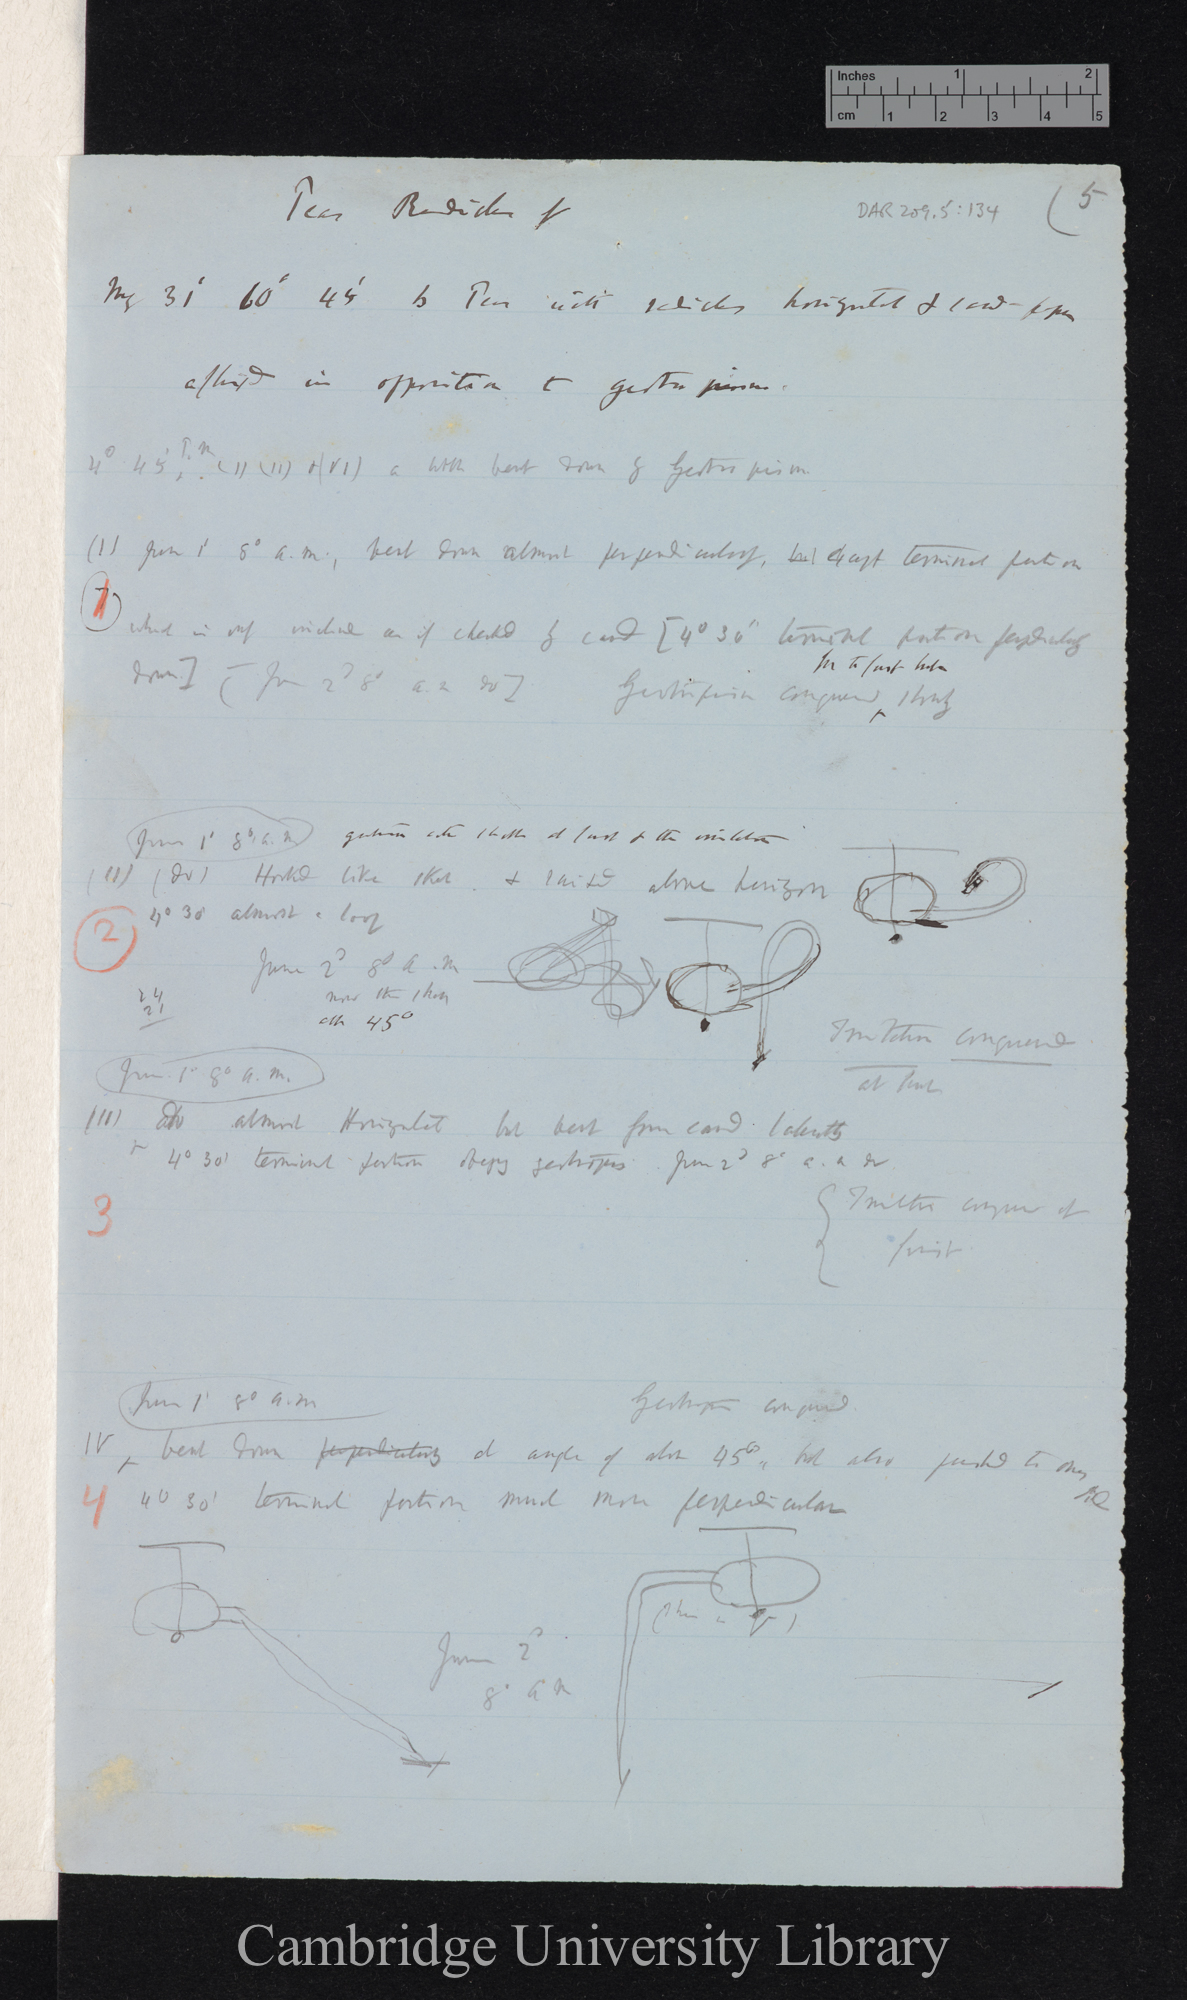 Inches 1 2
cm 1 2 3 4 5
Peas Radicles of
DAR 209.5:134 (5
May 31' 10° 45' 6 Peas with radicles horizontal & card-paper
affixed in opposition to geotropism.
4° 45' P.m (I) (II) & (VI) a little bent down by Geotropism
(I) June 1' 8° a.m., bent down almost perpendicularly, except terminal portion
1
which is only inclined as if checked by card [4° 30' terminal portion perpendicularly
down] [June 2° 8° a.m do]
Geotropism conquered
June 1' 8° a.m
(II) (do) Hooked like sketch & raised above horizon
4° 30' almost a loop
2
June 2° 8° a.m
now the
45°
24
21
Irritation conquered
at first
June 1' 8° a.m.
(III) do almost Horizontal but bent from card laterally
4° 30' terminal portion obeys geotropism June 2° 8° a.m do
3
Irritation conquers at
first
June 1' 8° a.m
Geotropism conquered
IV bent down perpendicularly at angle of about 45°, but also pushed to one side
4
4° 30' terminal portion much more perpendicular
June 2°
8° a m
Cambridge University Library